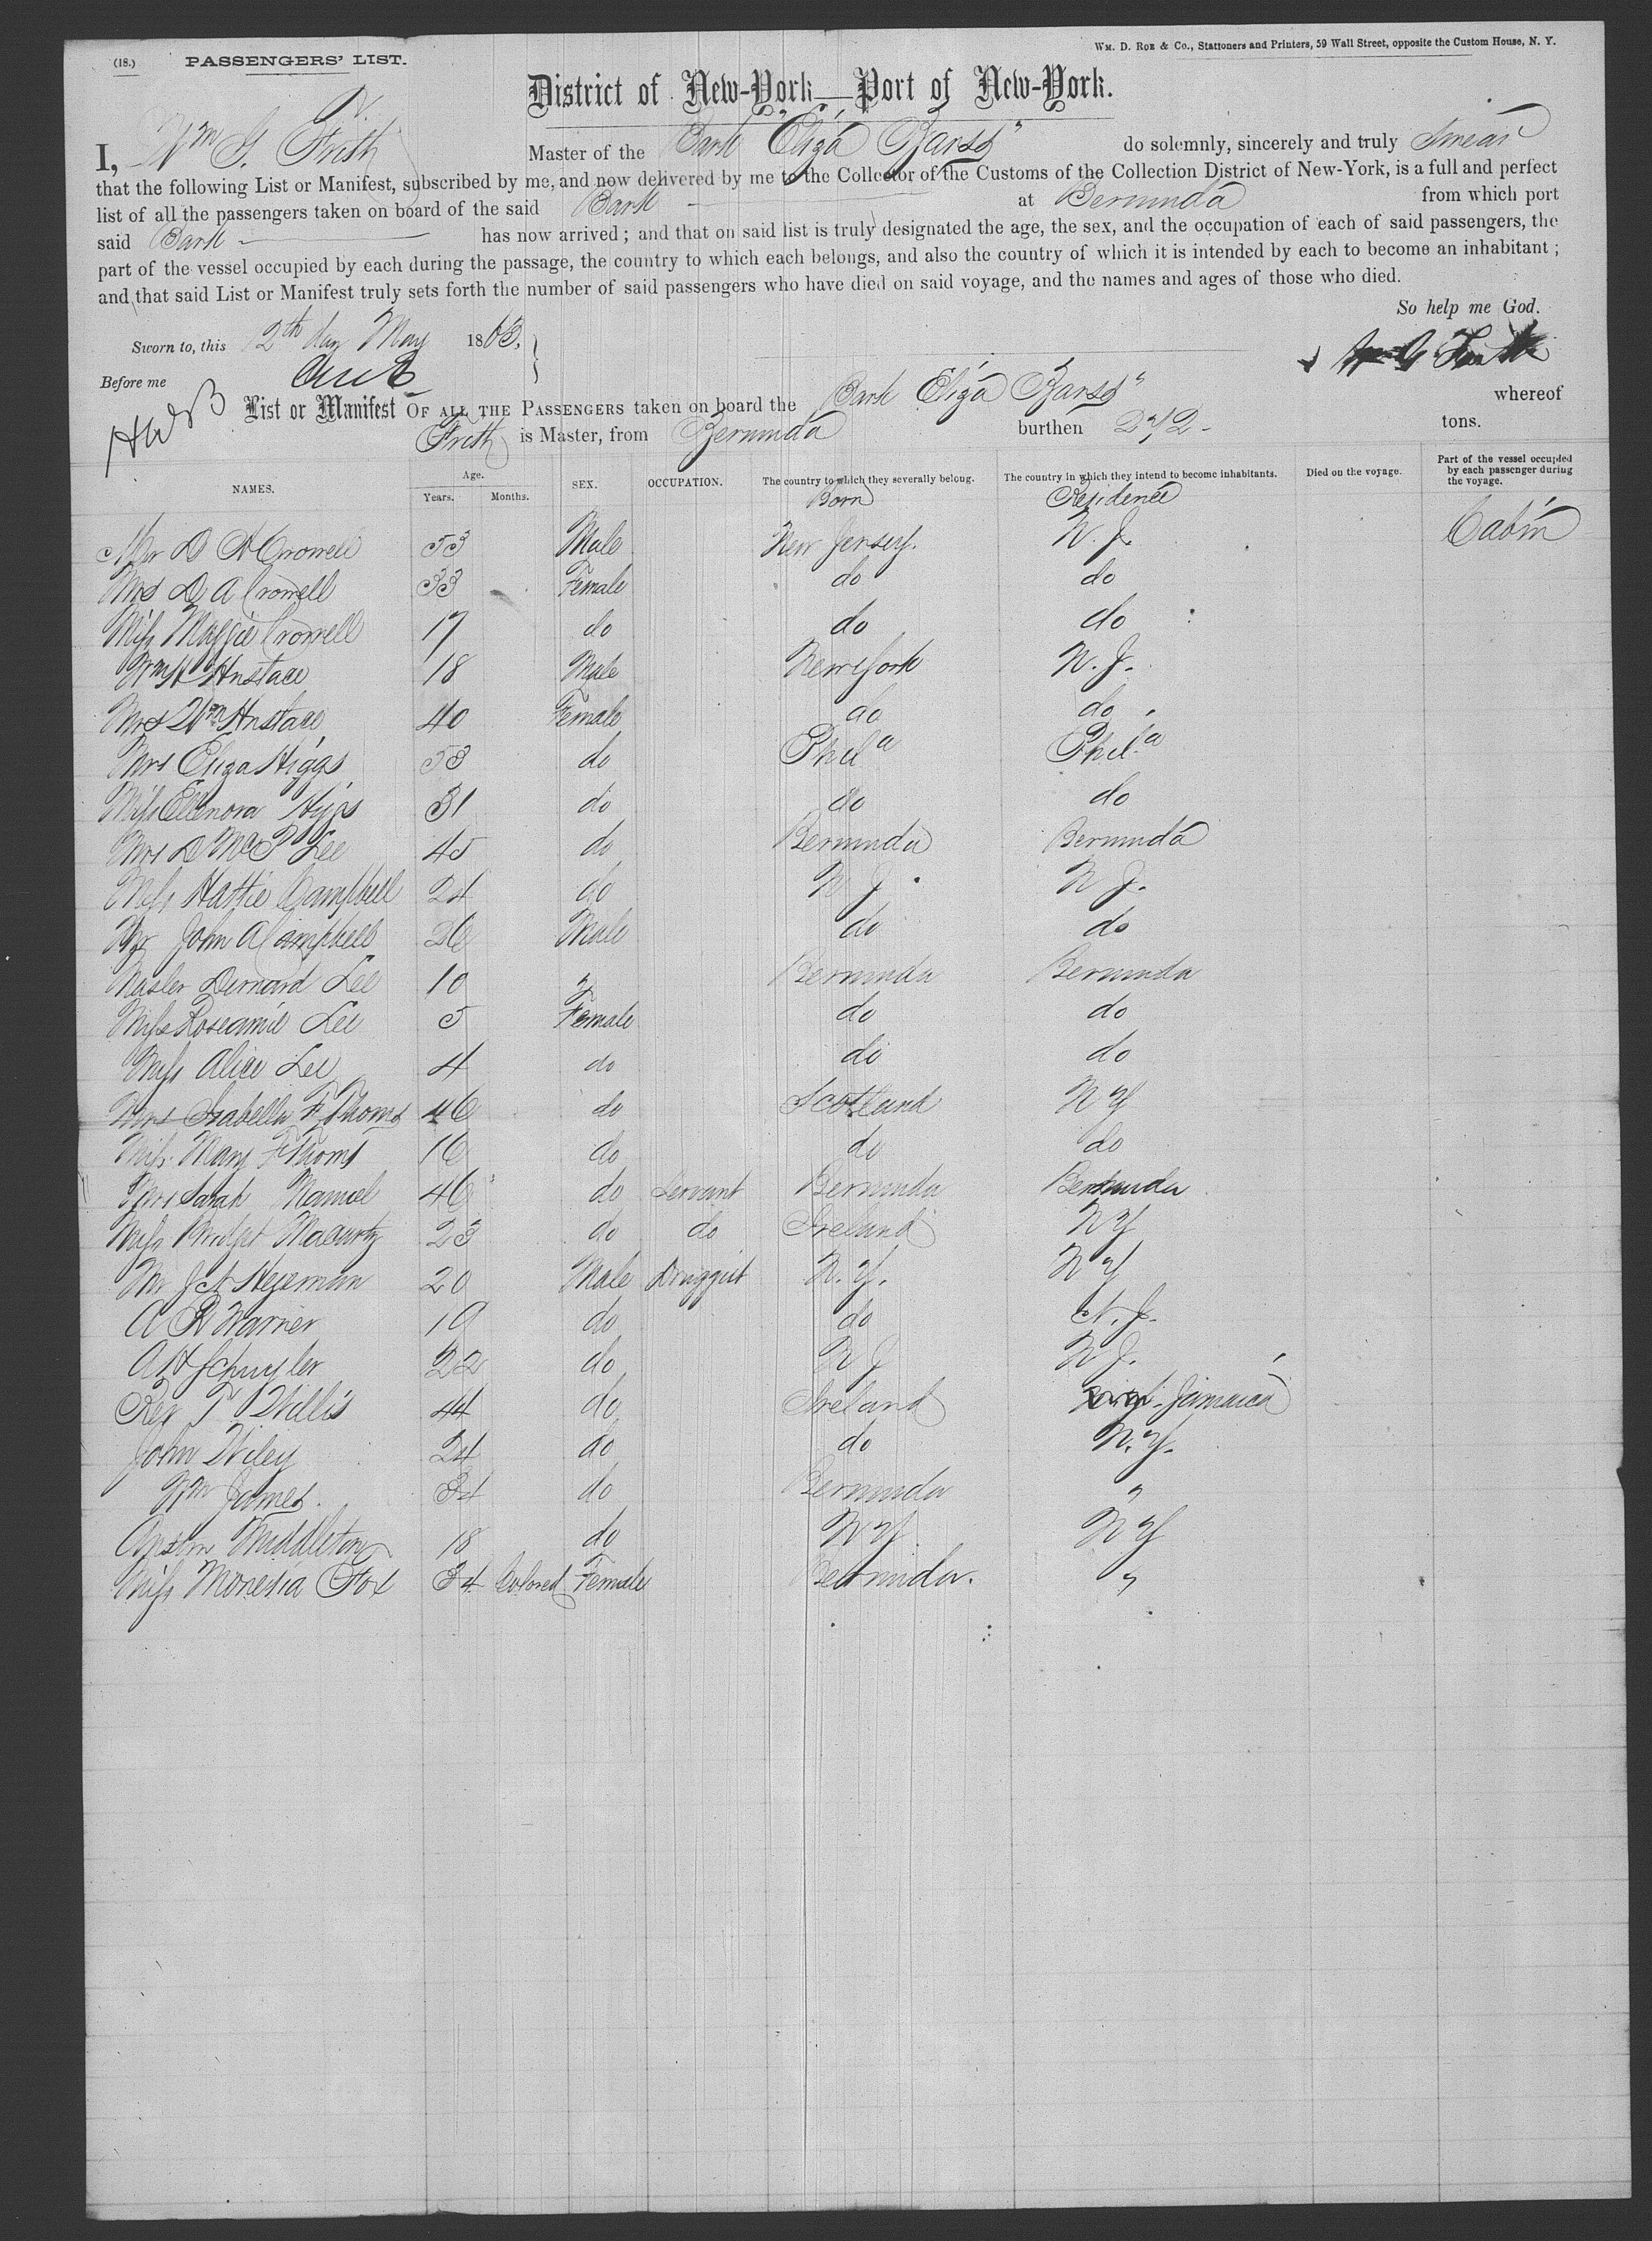 (18.) PASSENGERS' LIST. WM. D. ROE & CO., Stationers and Printers, 59 Wall Street, opposite the Custom House, N. Y.
District of New-York—Port of New-York.
I, Wm G. Frith Master of the Bark "Eliza Barss" do solemnly, sincerely and truly Swear
that the following List or Manifest, subscribed by me, and now delivered by me to the Collector of the Customs of the Collection District of New-York, is a full and perfect
list of all the passengers taken on board of the said Bark at Bermuda from which port
said Bark has now arrived; and that on said list is truly designated the age, the sex, and the occupation of each of said passengers, the
part of the vessel occupied by each during the passage, the country to which each belongs, and also the country of which it is intended by each to become an inhabitant;
and that said List or Manifest truly sets forth the number of said passengers who have died on said voyage, and the names and ages of those who died.
So help me God.
Sworn to, this 2th day May 1863.
Before me
List or Manifest OF ALL THE PASSENGERS taken on board the Bark Eliza Barss" whereof
Frith is Master, from Bermuda burthen tons.
NAMES. Age. Years. Months. SEX. OCCUPATION. The country to which they severally belong. The country in which they intend to become inhabitants. Died on the voyage. Part of the vessel occupied by each passenger during the voyage.
Born Residence
Mr D A Crowell 53 Male New Jersey. N. J. Cabin
Mrs D A Crowell 33 Female do do
Miss Maggie Crowell 17 do do do
Wm H Anstace 18 Male New York N. J.
Mrs Wm Anstace 40 Female do do
Mrs Eliza Higgs 53 do Phila Phila
Miss Ellenora Higgs 31 do do do
Mrs D McP Lee 45 do Bermuda Bermuda
Miss Hattie Campbell 24 do N J. N J.
Mr John A Campbell 26 Male do do
Master Bernard Lee 10 " Bermuda Bermuda
Miss Roseamie Lee 5 Female do do
Miss Alice Lee 4 do do do
Mrs Isabella F Thoms 46 do Scotland N Y
Miss Mary F Thoms 16 do do do
Mrs Sarah Manuel 46 do Servant Bermuda Bermuda
Miss Bridget Macarty 23 do do Ireland N Y
Mr J A Hegeman 20 Male Druggist N. Y. N Y
A R Warner 19 do do N. J.
A H Schuyler 22 do N J N J.
Rev T Willis 44 do Ireland Jamaica
John Wiley 24 do do N. Y.
Wm James. 34 do Bermuda "
Middleton 18 do N Y. N Y
Miss Monesia Fox 34 Colored Female Bermuda. "